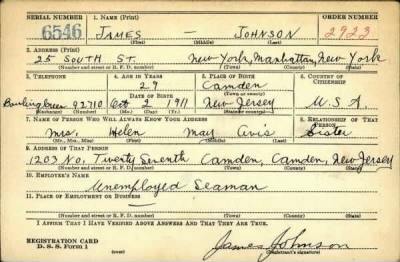 SERIAL NUMBER 1. NAME (Print) ORDER NUMBER
6546 JAMES — JOHNSON 2923
(First) (Middle) (Last)
2. ADDRESS (Print)
25 SOUTH ST. New York, Manhattan, New York
(Number and street or R. F. D. number) (Town) (County) (State)
3. TELEPHONE 4. AGE IN YEARS 5. PLACE OF BIRTH 6. COUNTRY OF CITIZENSHIP
29 Camden
DATE OF BIRTH (Town or county)
Bowling Green 92710 Oct 2 1911 New Jersey U.S.A.
(Exchange) (Number) (Mo.) (Day) (Yr.) (State or country)
7. NAME OF PERSON WHO WILL ALWAYS KNOW YOUR ADDRESS 8. RELATIONSHIP OF THAT PERSON
Mrs. Helen May Avis Sister
(Mr., Mrs., Miss) (First) (Middle) (Last)
9. ADDRESS OF THAT PERSON
1203 No. Twenty Seventh Camden, Camden, New Jersey
(Number and street or R. F. D. number) (Town) (County) (State)
10. EMPLOYER'S NAME
Unemployed Seaman
11. PLACE OF EMPLOYMENT OR BUSINESS
(Number and street or R. F. D. number) (Town) (County) (State)
I AFFIRM THAT I HAVE VERIFIED ABOVE ANSWERS AND THAT THEY ARE TRUE.
REGISTRATION CARD James Johnson
D. S. S. Form 1 (over) (Registrant's signature)